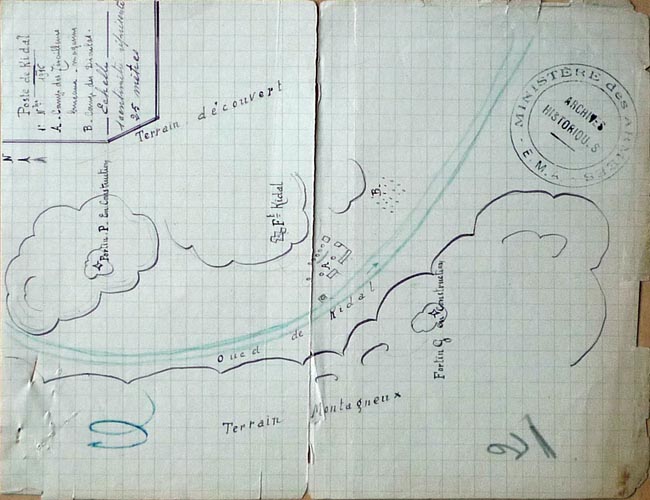 Poste de Kidal
A. Camp des Tirailleurs
B. Camp des
Echelle
1 centimètre représente
25 mètres
N
Terrain découvert
MINISTÈRE des ARMÉES
ARCHIVES
HISTORIQUES
E.M.A.
Fortin P. En Construction
Ft Kidal
B.
A
Oued de Kidal
Fortin G en Construction
Terrain Montagneux